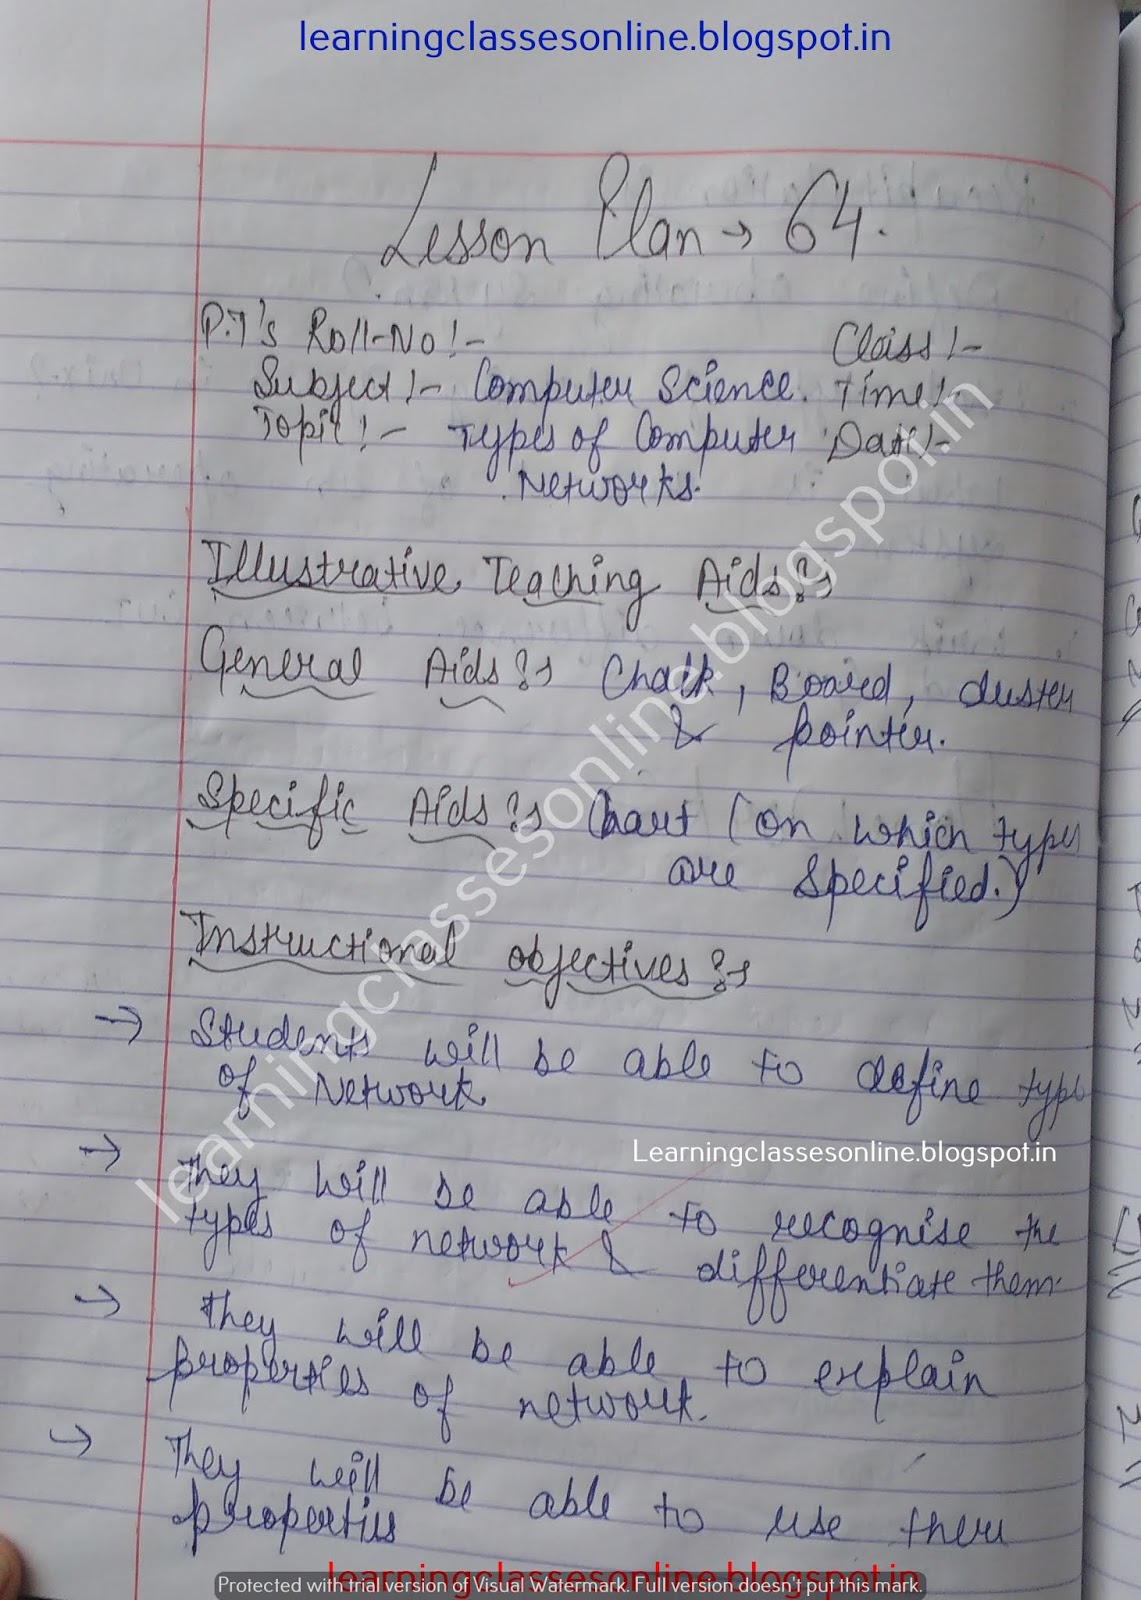 learningclassesonline.blogspot.in
Lesson Plan → 64.
P.T's Roll-No!- Class!-
Subject!- Computer Science. Time!-
Topic!- Types of Computer Date!-
Networks.
Illustrative Teaching Aids:→
General Aids:→ Chalk, Board, duster
& pointer.
Specific Aids:→ Chart (on which types
are specified.)
Instructional objectives:→
→ Students will be able to define type
of Network
Learningclassesonline.blogspot.in
→ They will be able to recognise the
types of network & differentiate them.
→ They will be able to explain
properties of network.
→ They will be able to use there
properties
learningclassesonline.blogspot.in
learningclassesonline.blogspot.in
Protected with trial version of Visual Watermark. Full version doesn't put this mark.